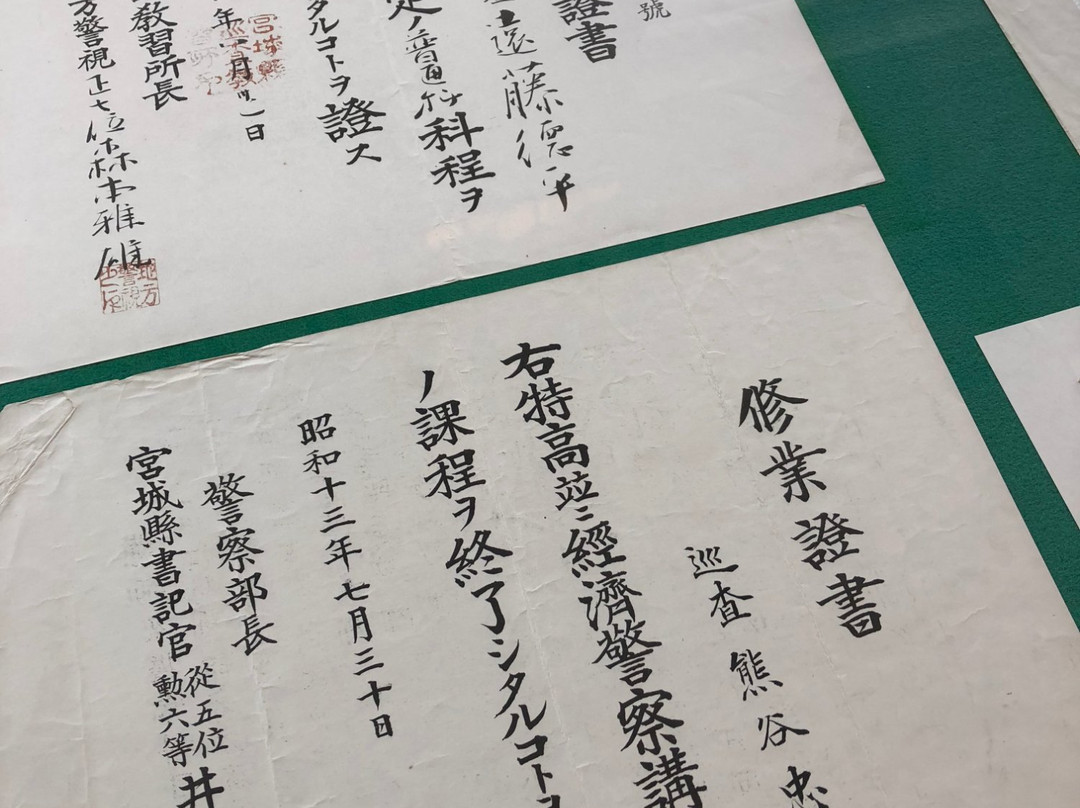 號
證書
遠藤德平
ノ普通科程ヲ
タルコトヲ證ス
年 月 日
教習所長
警視正七位 雅雄
修業證書
巡査 熊谷忠
右特高並ニ經濟警察講
ノ課程ヲ終了シタルコトヲ
昭和十三年七月三十日
警察部長
宮城縣書記官 從五位 勲六等 井